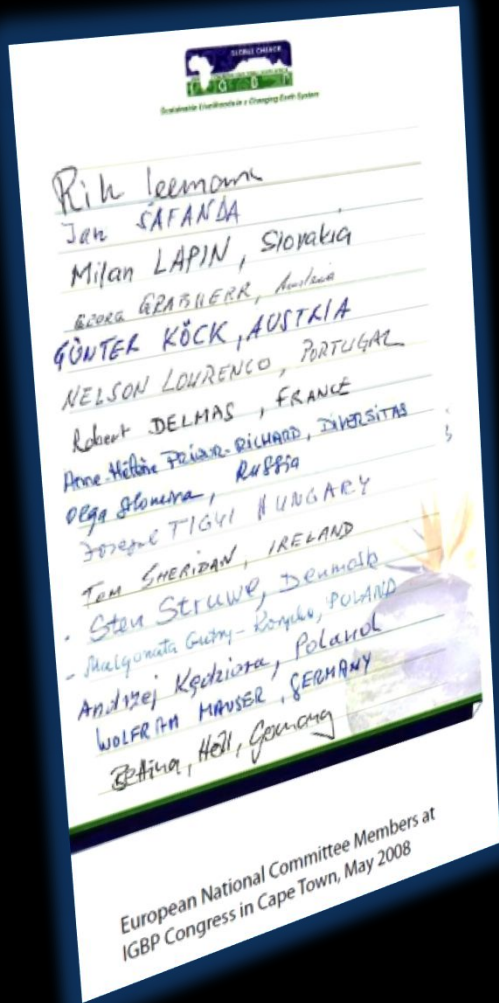 GLOBAL CHANGE
IGBP
Sustainable Livelihoods in a Changing Earth System
Rik Leemans
Jan SAFANDA
Milan LAPIN, Slovakia
GEORG GRABHERR, Austria
GÜNTER KÖCK, AUSTRIA
NELSON LOURENCO, PORTUGAL
Robert DELMAS, FRANCE
Anne-Hélène PRIEUR-RICHARD, DIVERSITAS
Olga Russia
TIGYI HUNGARY
Tom SHERIDAN, IRELAND
- Sten Struwe, Denmark
- Malgorzata Gutry- POLAND
Andrzej Kędziora, Poland
WOLFRAM MAUSER, GERMANY
Bettina, Höll, Germany
European National Committee Members at
IGBP Congress in Cape Town, May 2008